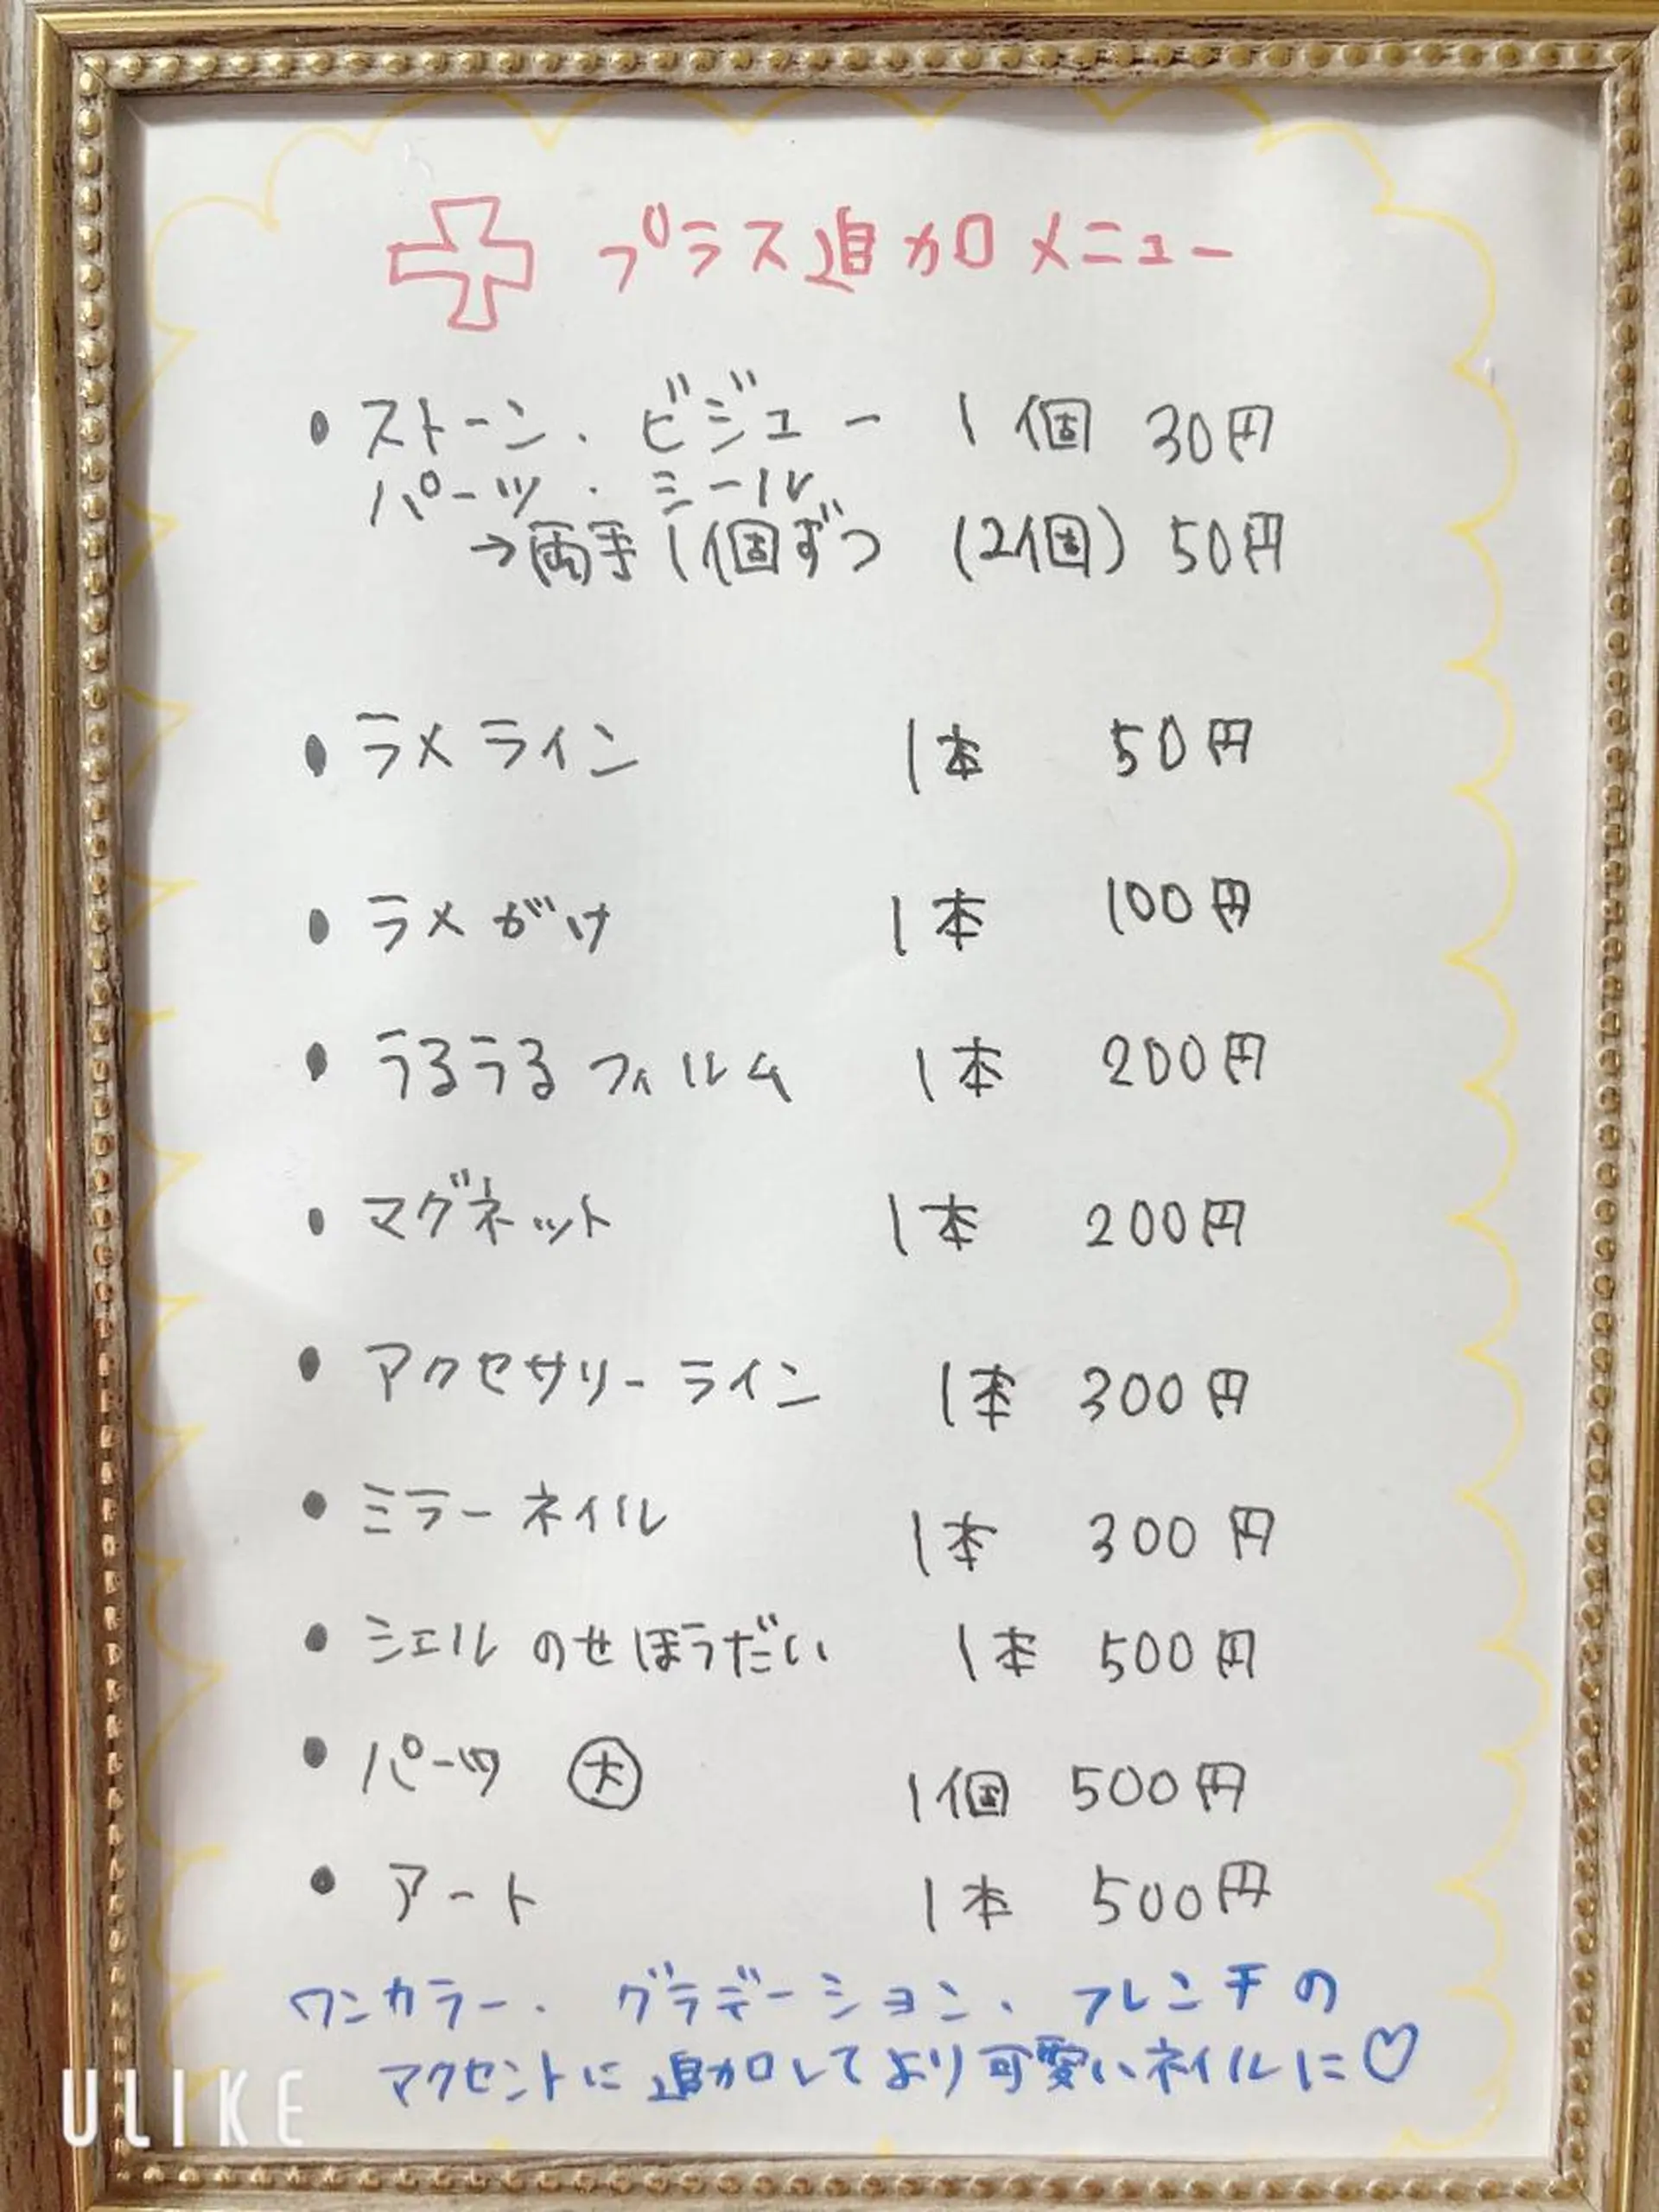 プラス追加メニュー
• ストーン・ビジュー 1個 30円
パーツ・シール
→両手1個ずつ (2個) 50円
• ラメライン 1本 50円
• ラメがけ 1本 100円
• うるうるフィルム 1本 200円
• マグネット 1本 200円
• アクセサリーライン 1本 300円
• ミラーネイル 1本 300円
• シェルのせほうだい 1本 500円
• パーツ 大 1個 500円
• アート 1本 500円
ワンカラー・グラデーション・フレンチの
アクセントに追加してより可愛いネイルに♡
ULIKE